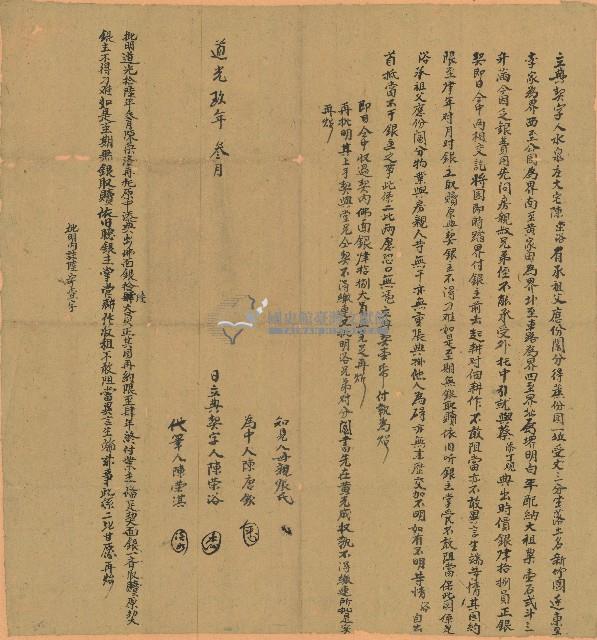 立典契字人水泉庄大宅陳榮洛有承祖父應份鬮分得旗份園一坵受丈三分坐落土名新竹圍連東至
李家為界西至公園為界南至黃家田為界北至車路為界四至界址為界明白年配納大租粟壹石弍斗三
升滿今因乏銀費用先問房親叔兄弟侄不能承受外托中引就與蔡 典出時價銀肆拾捌員正銀
契即日仝中兩相交訖將園即時踏界付銀主前去起耕對佃耕作不敢阻當亦不敢異言生端等情其園約
限至肆年對月對銀主取贖原典契銀主不得刁難如是至期無銀取贖依旧听銀主掌管不敢阻當保此園係是
洛承祖父應份鬮分物業與房親人等無干亦無重張典掛他人為碍亦無來歷交加不明如有不明等情洛自出
首抵當不干銀主之事此係二比兩愿恐口無憑立典契壹紙付執為炤
即日仝中收過契內佛面銀肆拾捌大員正完足再炤
再批明其上手契與堂兄仝契不得繳連又批明洛兄弟對分鬮書先在黃光成收執不得繳連所批是寔
再炤
知見人母親張氏
為中人陳
日立典契字人陳榮洛
代筆人陳榮淇
道光玖年叁月
批明道光拾陸年叁月陳榮洛再托原中添典出佛面銀拾 大員正其園再約限至肆年終付業主備足契面銀一齊取贖原契
銀主不得刁難如是至期無銀取贖依旧聽銀主掌管耕作收租不敢阻當異言生端滋事此係二比甘愿再炤
批明內註陸字壹字
國史館臺灣文獻館
TAIWAN HISTORICA